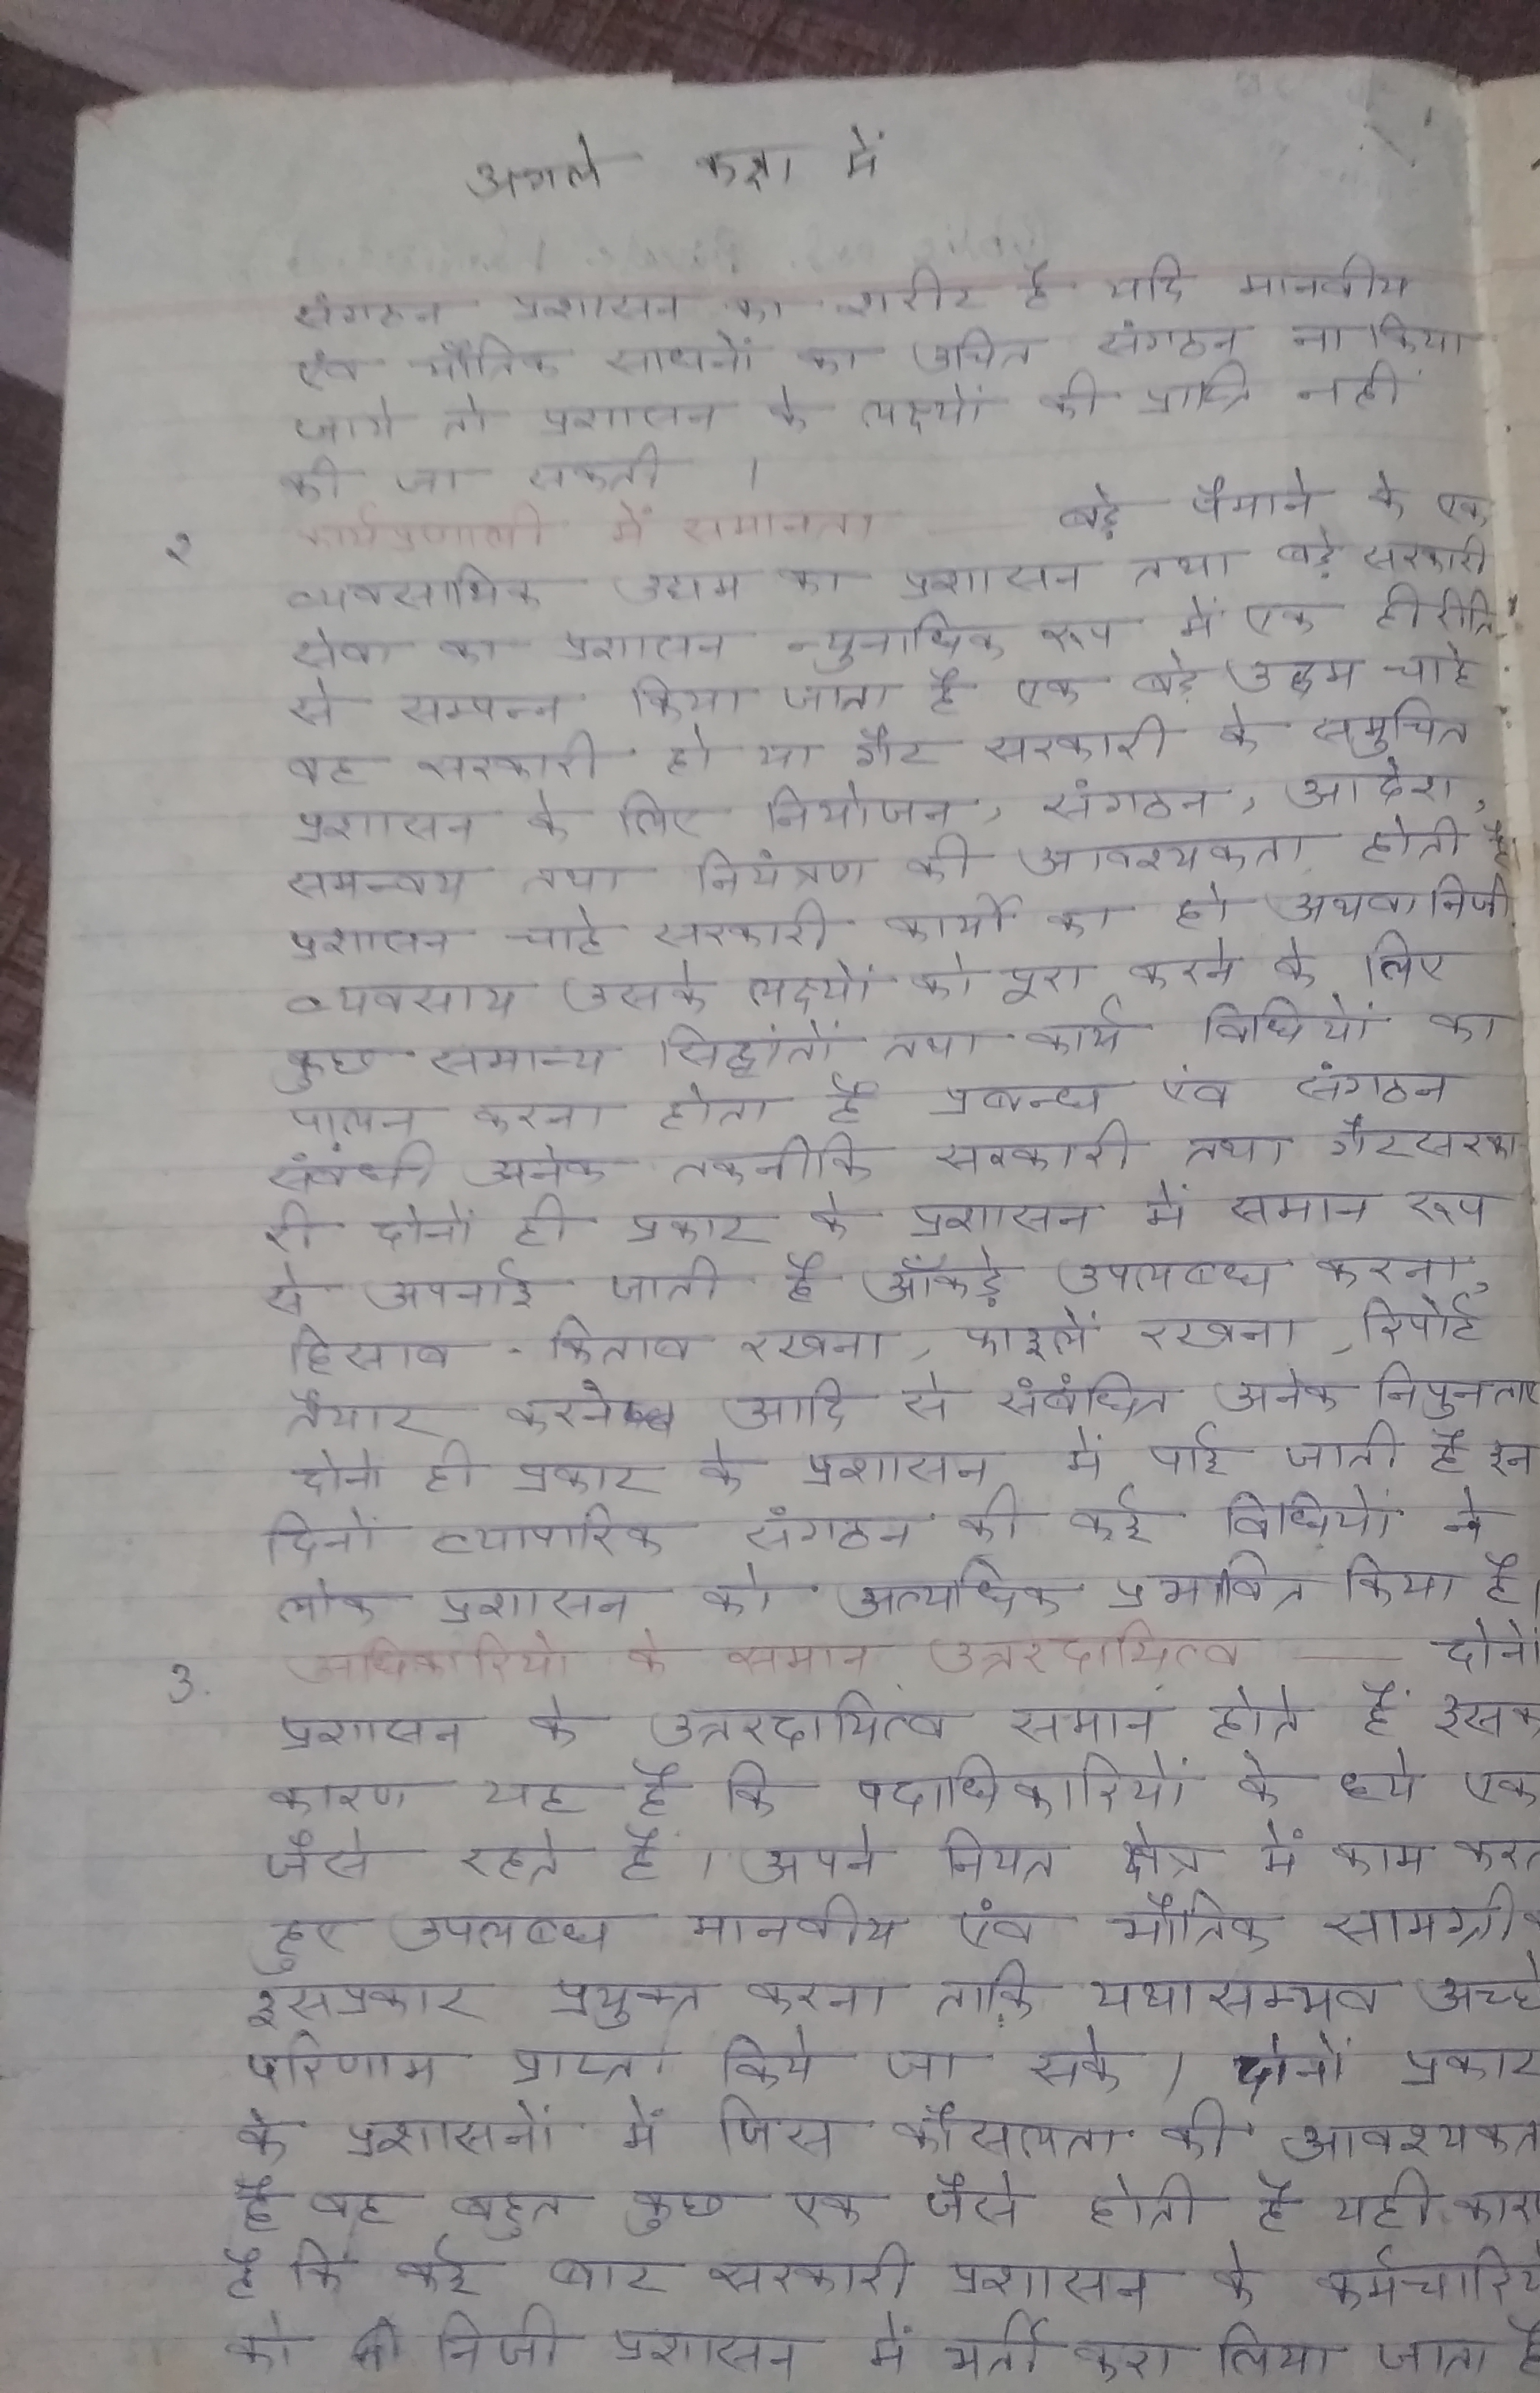 अगले कक्षा में
संगठन प्रशासन का शरीर है यदि मानवीय
एंव भौतिक साधनों का उचित संगठन ना किया
जाये तो प्रशासन के लक्ष्यों की प्राप्ति नहीं
की जा सकती ।
२ कार्यप्रणाली में समानता — बड़े पैमाने के एक
व्यवसायिक उद्यम का प्रशासन तथा बड़े सरकारी
सेवा का प्रशासन न्युनाधिक रूप में एक ही रीति
से सम्पन्न किया जाता है एक बड़े उद्यम चाहे
वह सरकारी हो या गैर सरकारी के समुचित
प्रशासन के लिए नियोजन, संगठन, आदेश,
समन्वय तथा नियंत्रण की आवश्यकता होती है
प्रशासन चाहे सरकारी कार्यों का हो अथवा निजी
व्यवसाय उसके लक्ष्यों को पूरा करने के लिए
कुछ समान्य सिद्धांतों तथा कार्य विधियों का
पालन करना होता है प्रबन्ध एंव संगठन
संबंधी अनेक तकनीकि सरकारी तथा गैरसरका
री दोनों ही प्रकार के प्रशासन में समान रूप
से अपनाई जाती है आँकड़े उपलब्ध करना,
हिसाब - किताब रखना, फाइलें रखना, रिपोर्ट
तैयार करने आदि से संबंधित अनेक निपुनताए
दोनो ही प्रकार के प्रशासन में पाई जाती है इन
दिनों व्यापारिक संगठन की कई विधियों ने
लोक प्रशासन को अत्यधिक प्रभावित किया है।
3. अधिकारियो के समान उत्तरदायित्व — दोनों
प्रशासन के उत्तरदायित्व समान होते हैं इसक
कारण यह है कि पदाधिकारियों के ध्ये एक
जैसे रहते हैं। अपने नियत क्षेत्र में काम करत
हुए उपलब्ध मानवीय एंव भौतिक सामग्री
इसप्रकार प्रयुक्त करना ताकि यथासम्भव अच्छे
परिणाम प्राप्त किये जा सके। दोनों प्रकार
के प्रशासनों में जिस कौसलता की आवश्यकत
है वह बहुत कुछ एक जैसे होती है यही कार
है कि कई बार सरकारी प्रशासन के कर्मचारिय
को निजी प्रशासन में भर्ती करा लिया जाता है